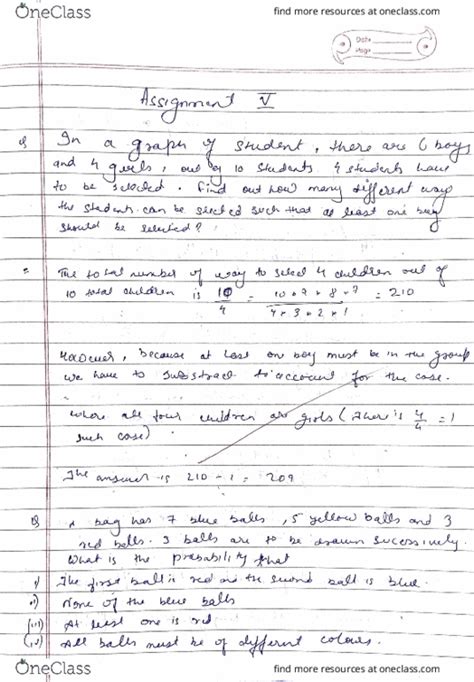 OneClass
find more resources at oneclass.com
Date
Page
Assignment V
Q In a graph of student, there are 6 boys
and 4 girls, out of 10 students. 4 students have
to be selected. Find out how many different way
the students can be selected such that at least one boy
should be selected?
= The total number of way to select 4 children out of
10 total children is 10/4 = 10*9*8*7 / 4*3*2*1 = 210
However, because at least on boy must be in the group
we have to substract to account for the case.
where all four children are girls (There is 4/4 = 1
such case)
The answer is 210 - 1 = 209
Q A bag has 7 blue balls, 5 yellow balls and 3
red balls. 3 balls are to be drawn sucessively.
What is the probability that
i) The first ball is red the second ball is blue.
ii) None of the blue balls
(iii) At least one is red
(iv) All balls must be of different colours.
OneClass
find more resources at oneclass.com